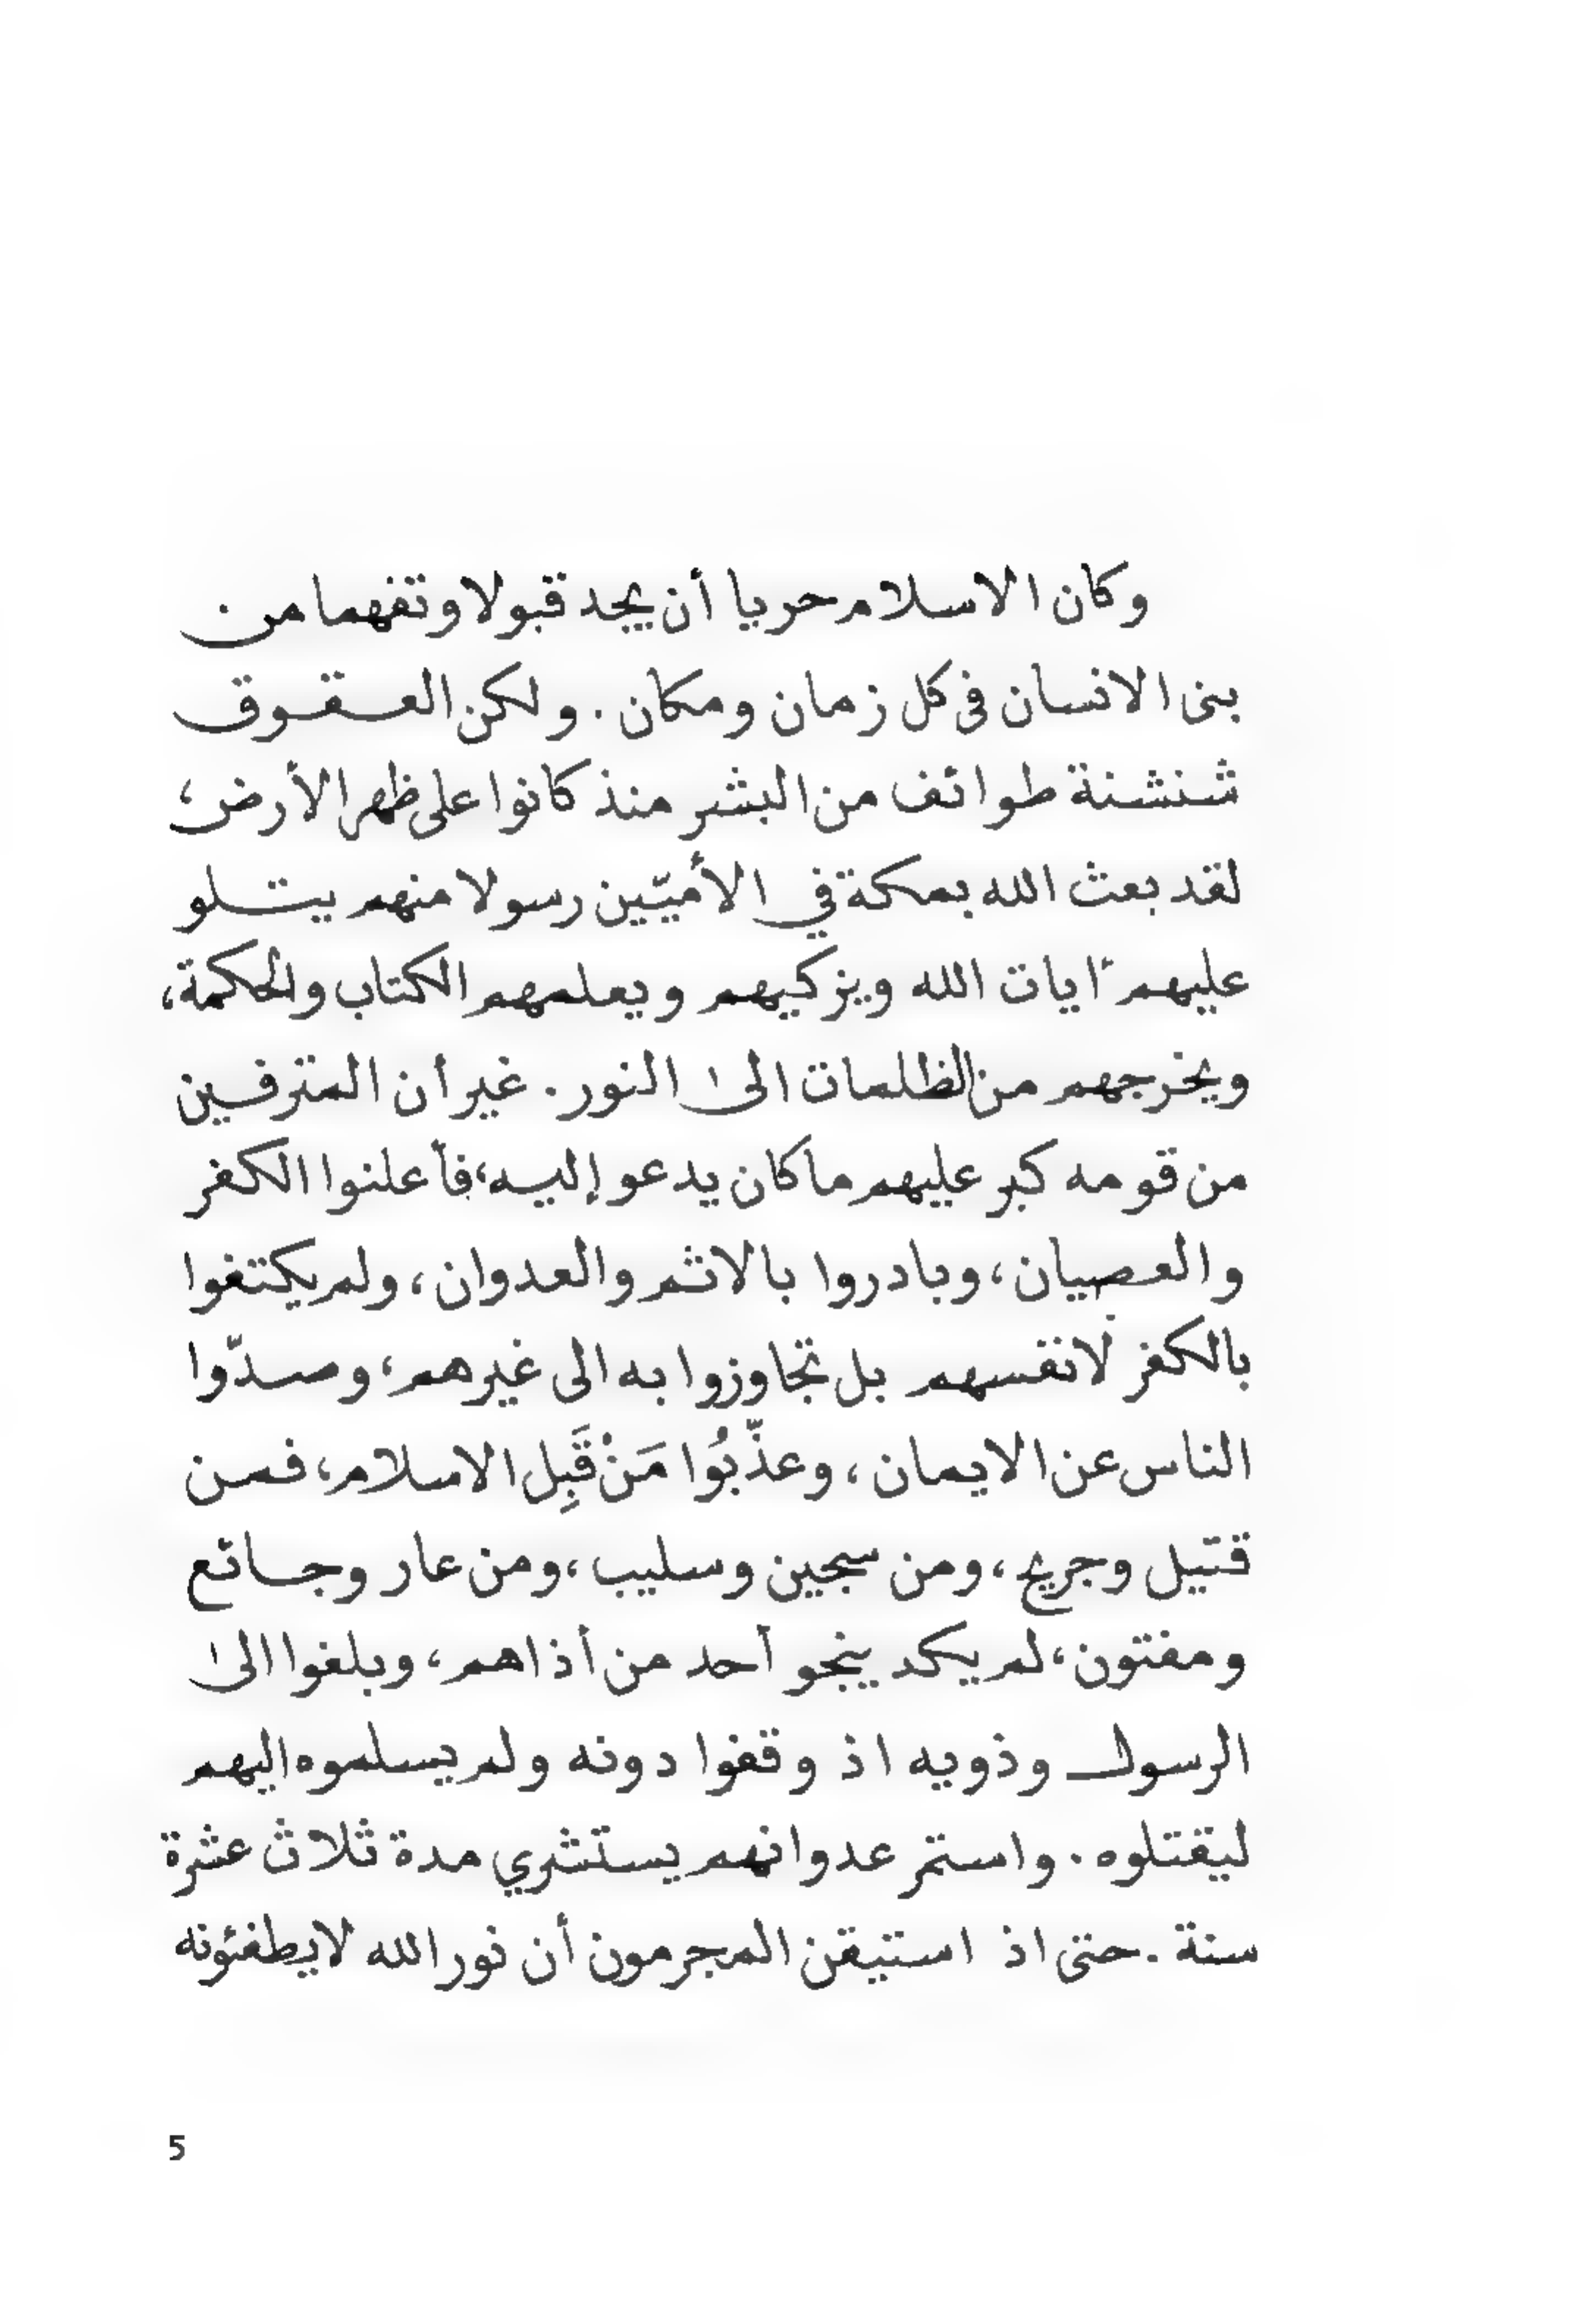 وكان الاسلام حريا أن يجد قبولا وتفهما من
بنى الانسان فى كل زمان ومكان . ولكن العقوق
شنشنة طوائف من البشر منذ كانوا على ظهر الأرض،
لقد بعث الله بمكة في الأميّين رسولا منهم يتلو
عليهم آيات الله ويزكيهم ويعلمهم الكتاب والحكمة،
ويخرجهم من الظلمات الى النور . غير أن المترفين
من قومه كبر عليهم ما كان يدعو إليه، فأعلنوا الكفر
والعصيان، وبادروا بالاثم والعدوان، ولم يكتفوا
بالكفر لانفسهم بل تجاوزوا به الى غيرهم، وصدّوا
الناس عن الايمان، وعذّبُوا مَنْ قَبِل الاسلام، فمن
قتيل وجريح، ومن سجين وسليب، ومن عار وجائع
ومفتون، لم يكد ينجو أحد من أذاهم، وبلغوا الى
الرسول وذويه اذ وقفوا دونه ولم يسلموه اليهم
ليقتلوه . واستمر عدوانهم يستشري مدة ثلاث عشرة
سنة . حتى اذ استيقن المجرمون أن نور الله لايطفئونه
5